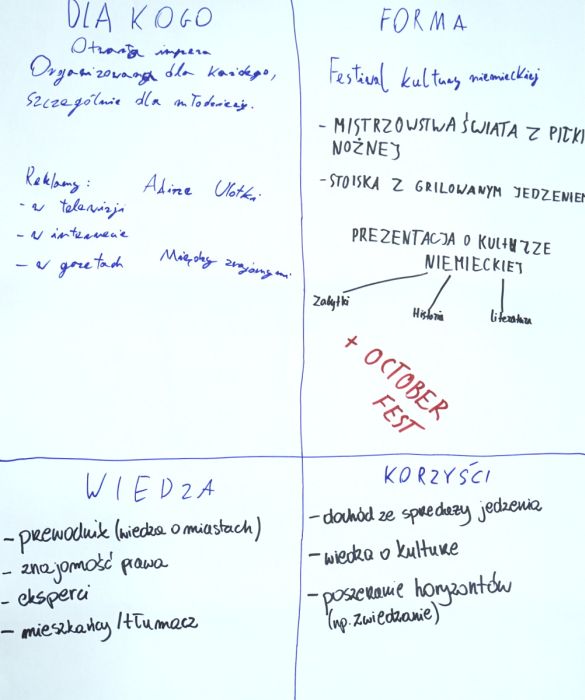 DLA KOGO
Otwarta impreza
Organizowana dla każdego,
szczególnie dla młodzieży.
Reklamy:
- w telewizji
- w internecie
- w gazetach
Afisze Ulotki
Między znajomymi
FORMA
Festiwal kultury niemieckiej
- MISTRZOWSTWA ŚWIATA Z PIŁKI
NOŻNEJ
- STOISKA Z GRILOWANYM JEDZENIEM
PREZENTACJA O KULTURZE
NIEMIECKIEJ
Zabytki
Historia
Literatura
+ OCTOBER
FEST
WIEDZA
- przewodnik (wiedza o miastach)
- znajomość prawa
- eksperci
- mieszkańcy / tłumacz
KORZYŚCI
- dochód ze sprzedaży jedzenia
- wiedza o kulturze
- poszerzanie horyzontów
(np. zwiedzanie)